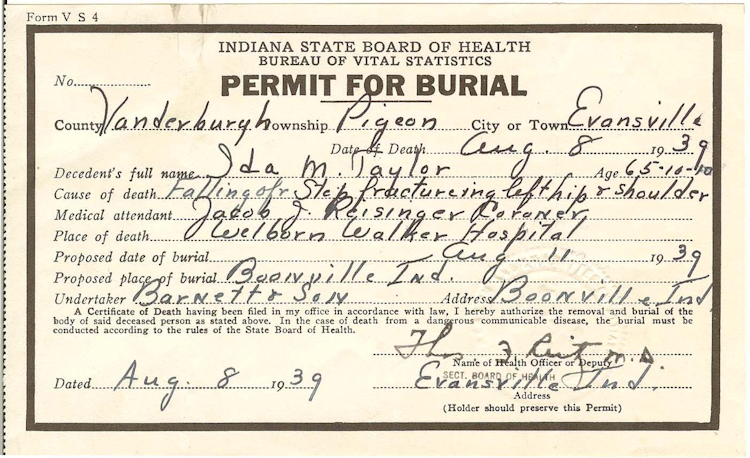 Form V S 4
INDIANA STATE BOARD OF HEALTH
BUREAU OF VITAL STATISTICS
No.
PERMIT FOR BURIAL
County Vanderburgh Township Pigeon City or Town Evansville
Date of Death Aug. 8 1939
Decedent's full name Ida M. Taylor Age 65-10-10
Cause of death Falling ofr Step fractureing left hip & shoulder
Medical attendant Jacob J. Reisinger Coroner
Place of death Welborn Walker Hospital
Proposed date of burial Aug 11 1939
Proposed place of burial Boonville Ind.
Undertaker Barnett & Son Address Boonville Ind
A Certificate of Death having been filed in my office in accordance with law, I hereby authorize the removal and burial of the
body of said deceased person as stated above. In the case of death from a dangerous communicable disease, the burial must be
conducted according to the rules of the State Board of Health.
Thos M.D.
Name of Health Officer or Deputy
SECT. BOARD OF HEALTH
Dated Aug. 8 1939 Evansville Ind.
Address
(Holder should preserve this Permit)